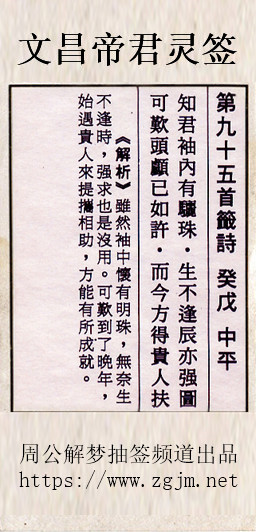 文昌帝君灵签
第九十五首籤詩 癸戊 中平
知君袖內有驪珠·生不逢辰亦强圖
可歎頭顱已如許·而今方得貴人扶
《解析》雖然袖中懷有明珠，無奈生
不逢時，强求也是沒用。可歎到了晚年，
始遇貴人來提攜相助，方能有所成就。
周公解梦抽签频道出品
https://www.zgjm.net